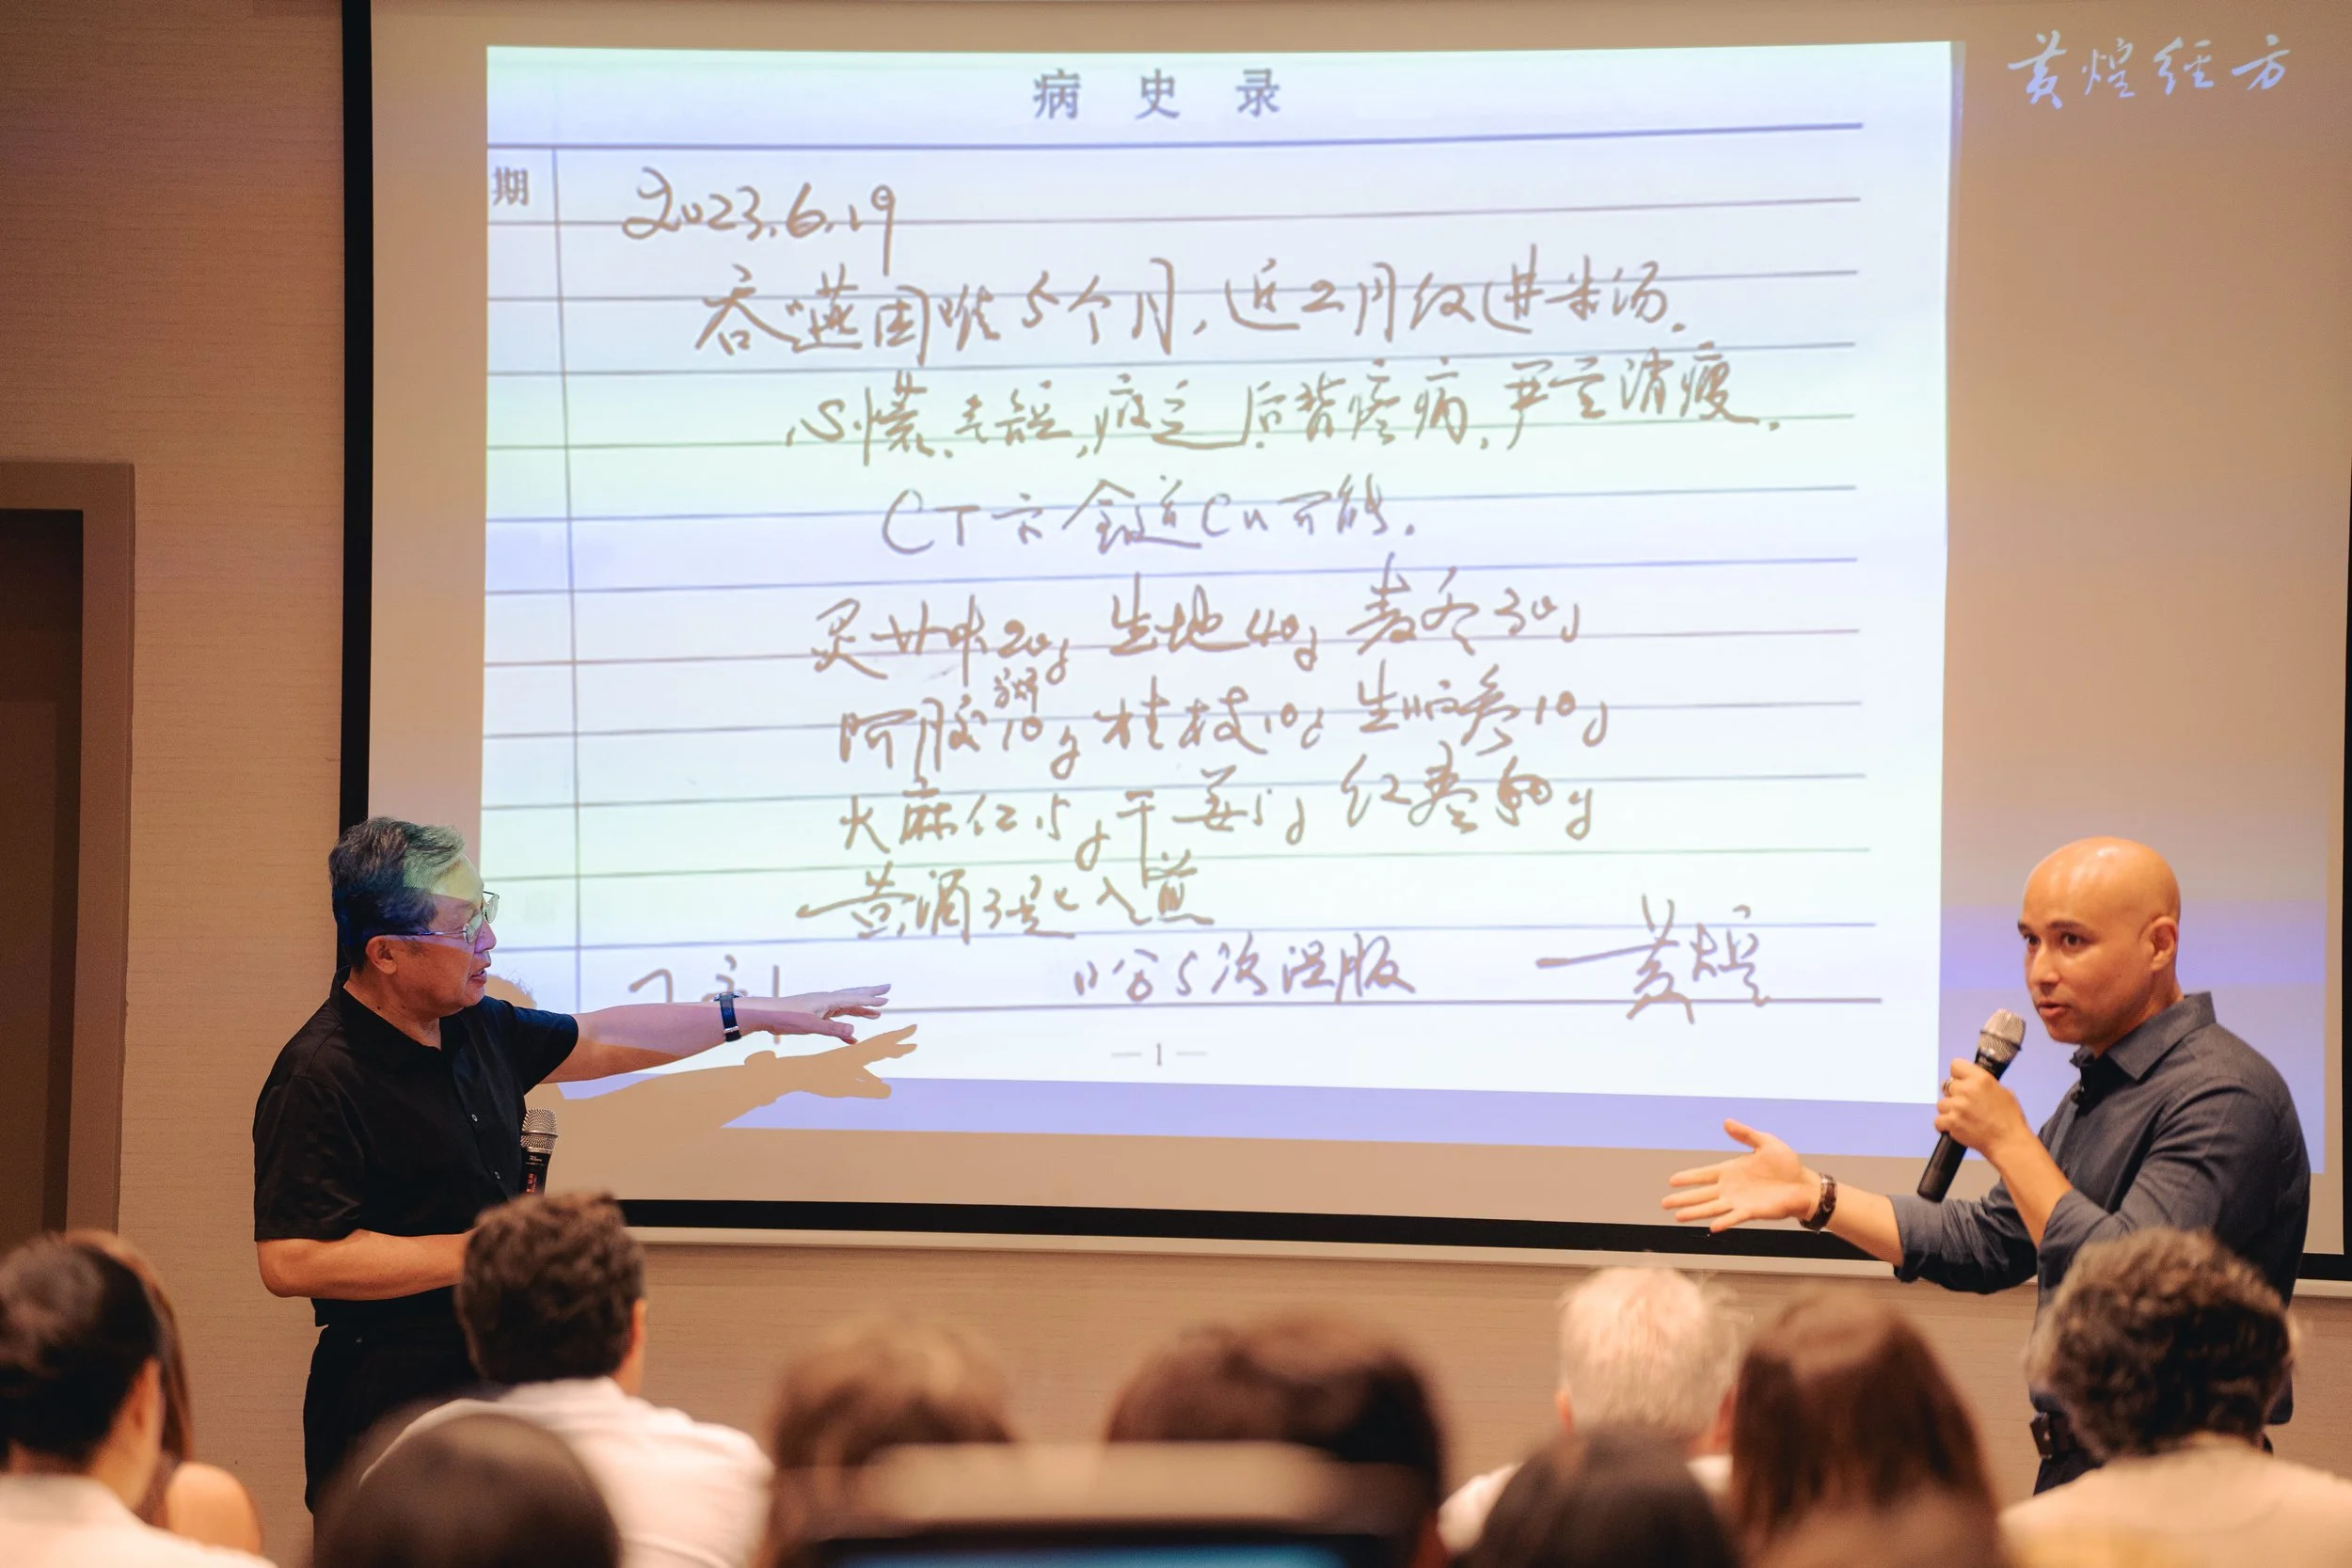 黄煌经方
病 史 录
期
2023.6.19
吞咽困难5个月,近2月仅进米汤.
心慌、气短,疲乏,后背疼痛,严重消瘦.
CT示食道Ca可能.
炙甘草20g 生地40g 麦冬30g
阿胶10g 桂枝10g 生晒参10g
火麻仁15g 干姜5g 红枣g
黄酒 入煎
7剂 日分5次温服 黄煌
— 1 —